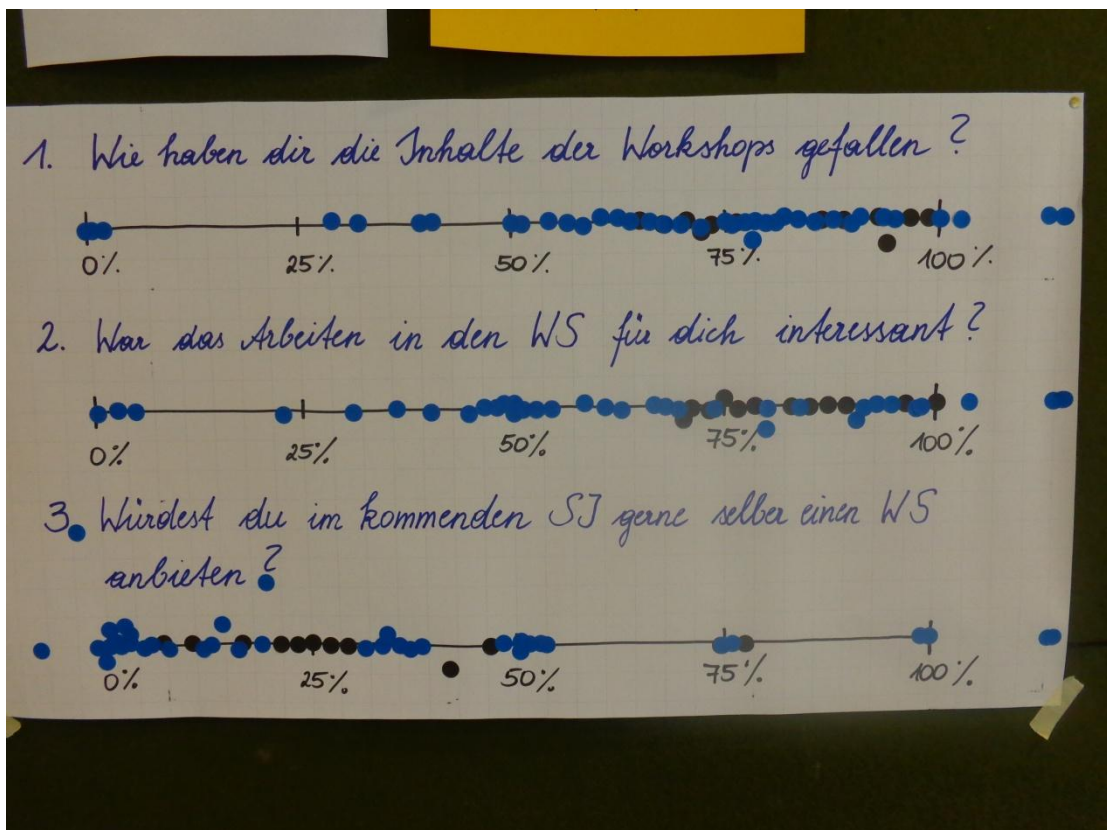 1. Wie haben dir die Inhalte der Workshops gefallen?
0% 25% 50% 75% 100%
2. War das Arbeiten in den WS für dich interessant?
0% 25% 50% 75% 100%
3. Würdest du im kommenden SJ gerne selber einen WS
anbieten?
0% 25% 50% 75% 100%